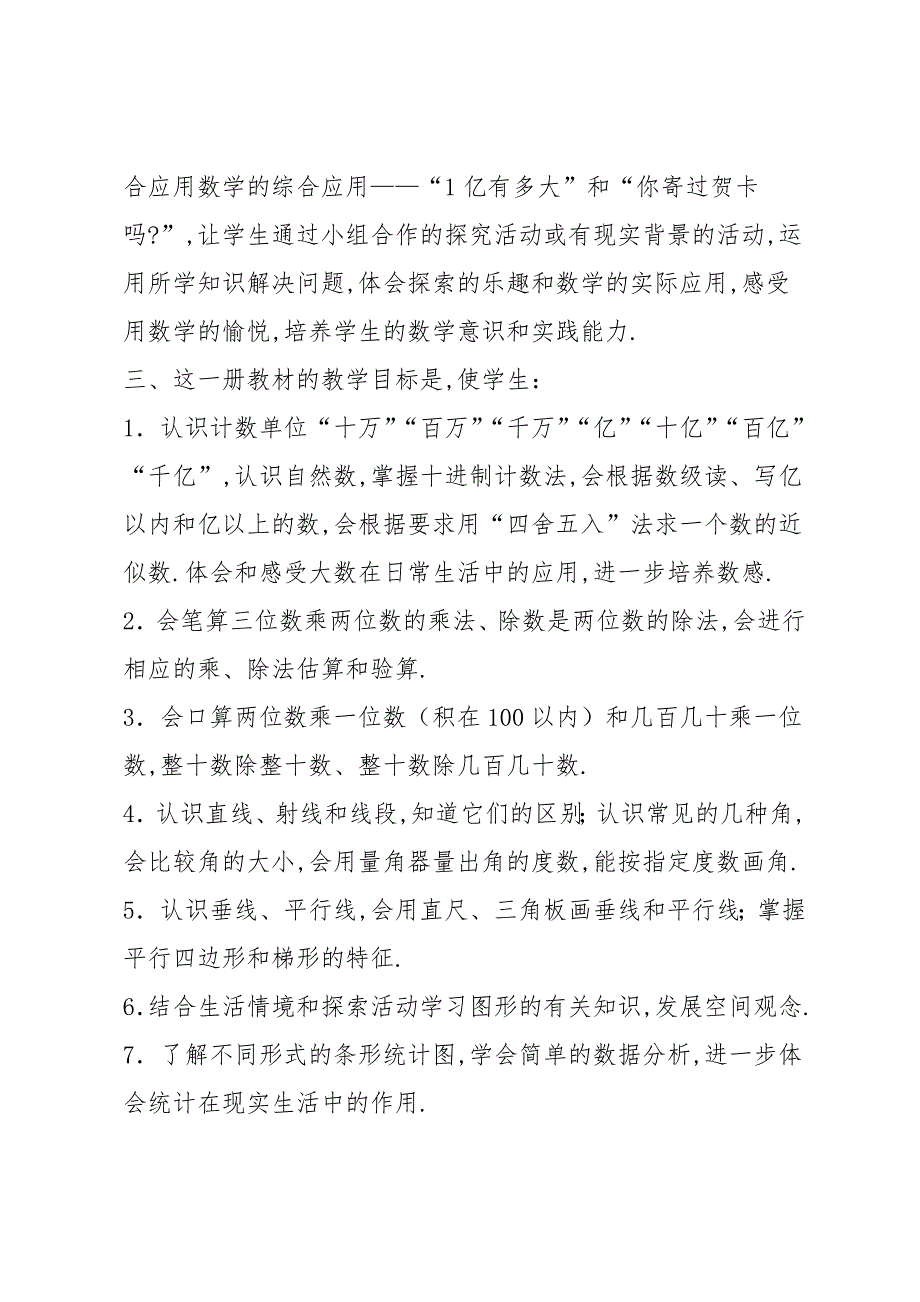 合应用数学的综合应用——“1亿有多大”和“你寄过贺卡
吗?”,让学生通过小组合作的探究活动或有现实背景的活动,运
用所学知识解决问题,体会探索的乐趣和数学的实际应用,感受
用数学的愉悦,培养学生的数学意识和实践能力.
三、这一册教材的教学目标是,使学生:
1. 认识计数单位“十万”“百万”“千万”“亿”“十亿”“百亿”
“千亿”,认识自然数,掌握十进制计数法,会根据数级读、写亿
以内和亿以上的数,会根据要求用“四舍五入”法求一个数的近
似数.体会和感受大数在日常生活中的应用,进一步培养数感.
2. 会笔算三位数乘两位数的乘法、除数是两位数的除法,会进行
相应的乘、除法估算和验算.
3. 会口算两位数乘一位数（积在100以内）和几百几十乘一位
数,整十数除整十数、整十数除几百几十数.
4. 认识直线、射线和线段,知道它们的区别;认识常见的几种角,
会比较角的大小,会用量角器量出角的度数,能按指定度数画角.
5. 认识垂线、平行线,会用直尺、三角板画垂线和平行线;掌握
平行四边形和梯形的特征.
6.结合生活情境和探索活动学习图形的有关知识,发展空间观念.
7. 了解不同形式的条形统计图,学会简单的数据分析,进一步体
会统计在现实生活中的作用.